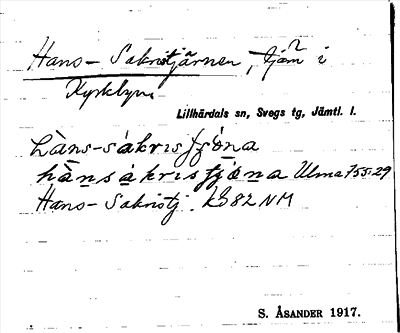 Hans-Sakristjärnen, tjärn i
Kyrkbyn.
Lillhärdals sn, Svegs tg, Jämtl. l.
hàns-sákrɩsʃʃòna
hàns ákrɩsʃʃòna Ulma 755:29
Hans-Sakristj. k 82 NM
S. ÅSANDER 1917.